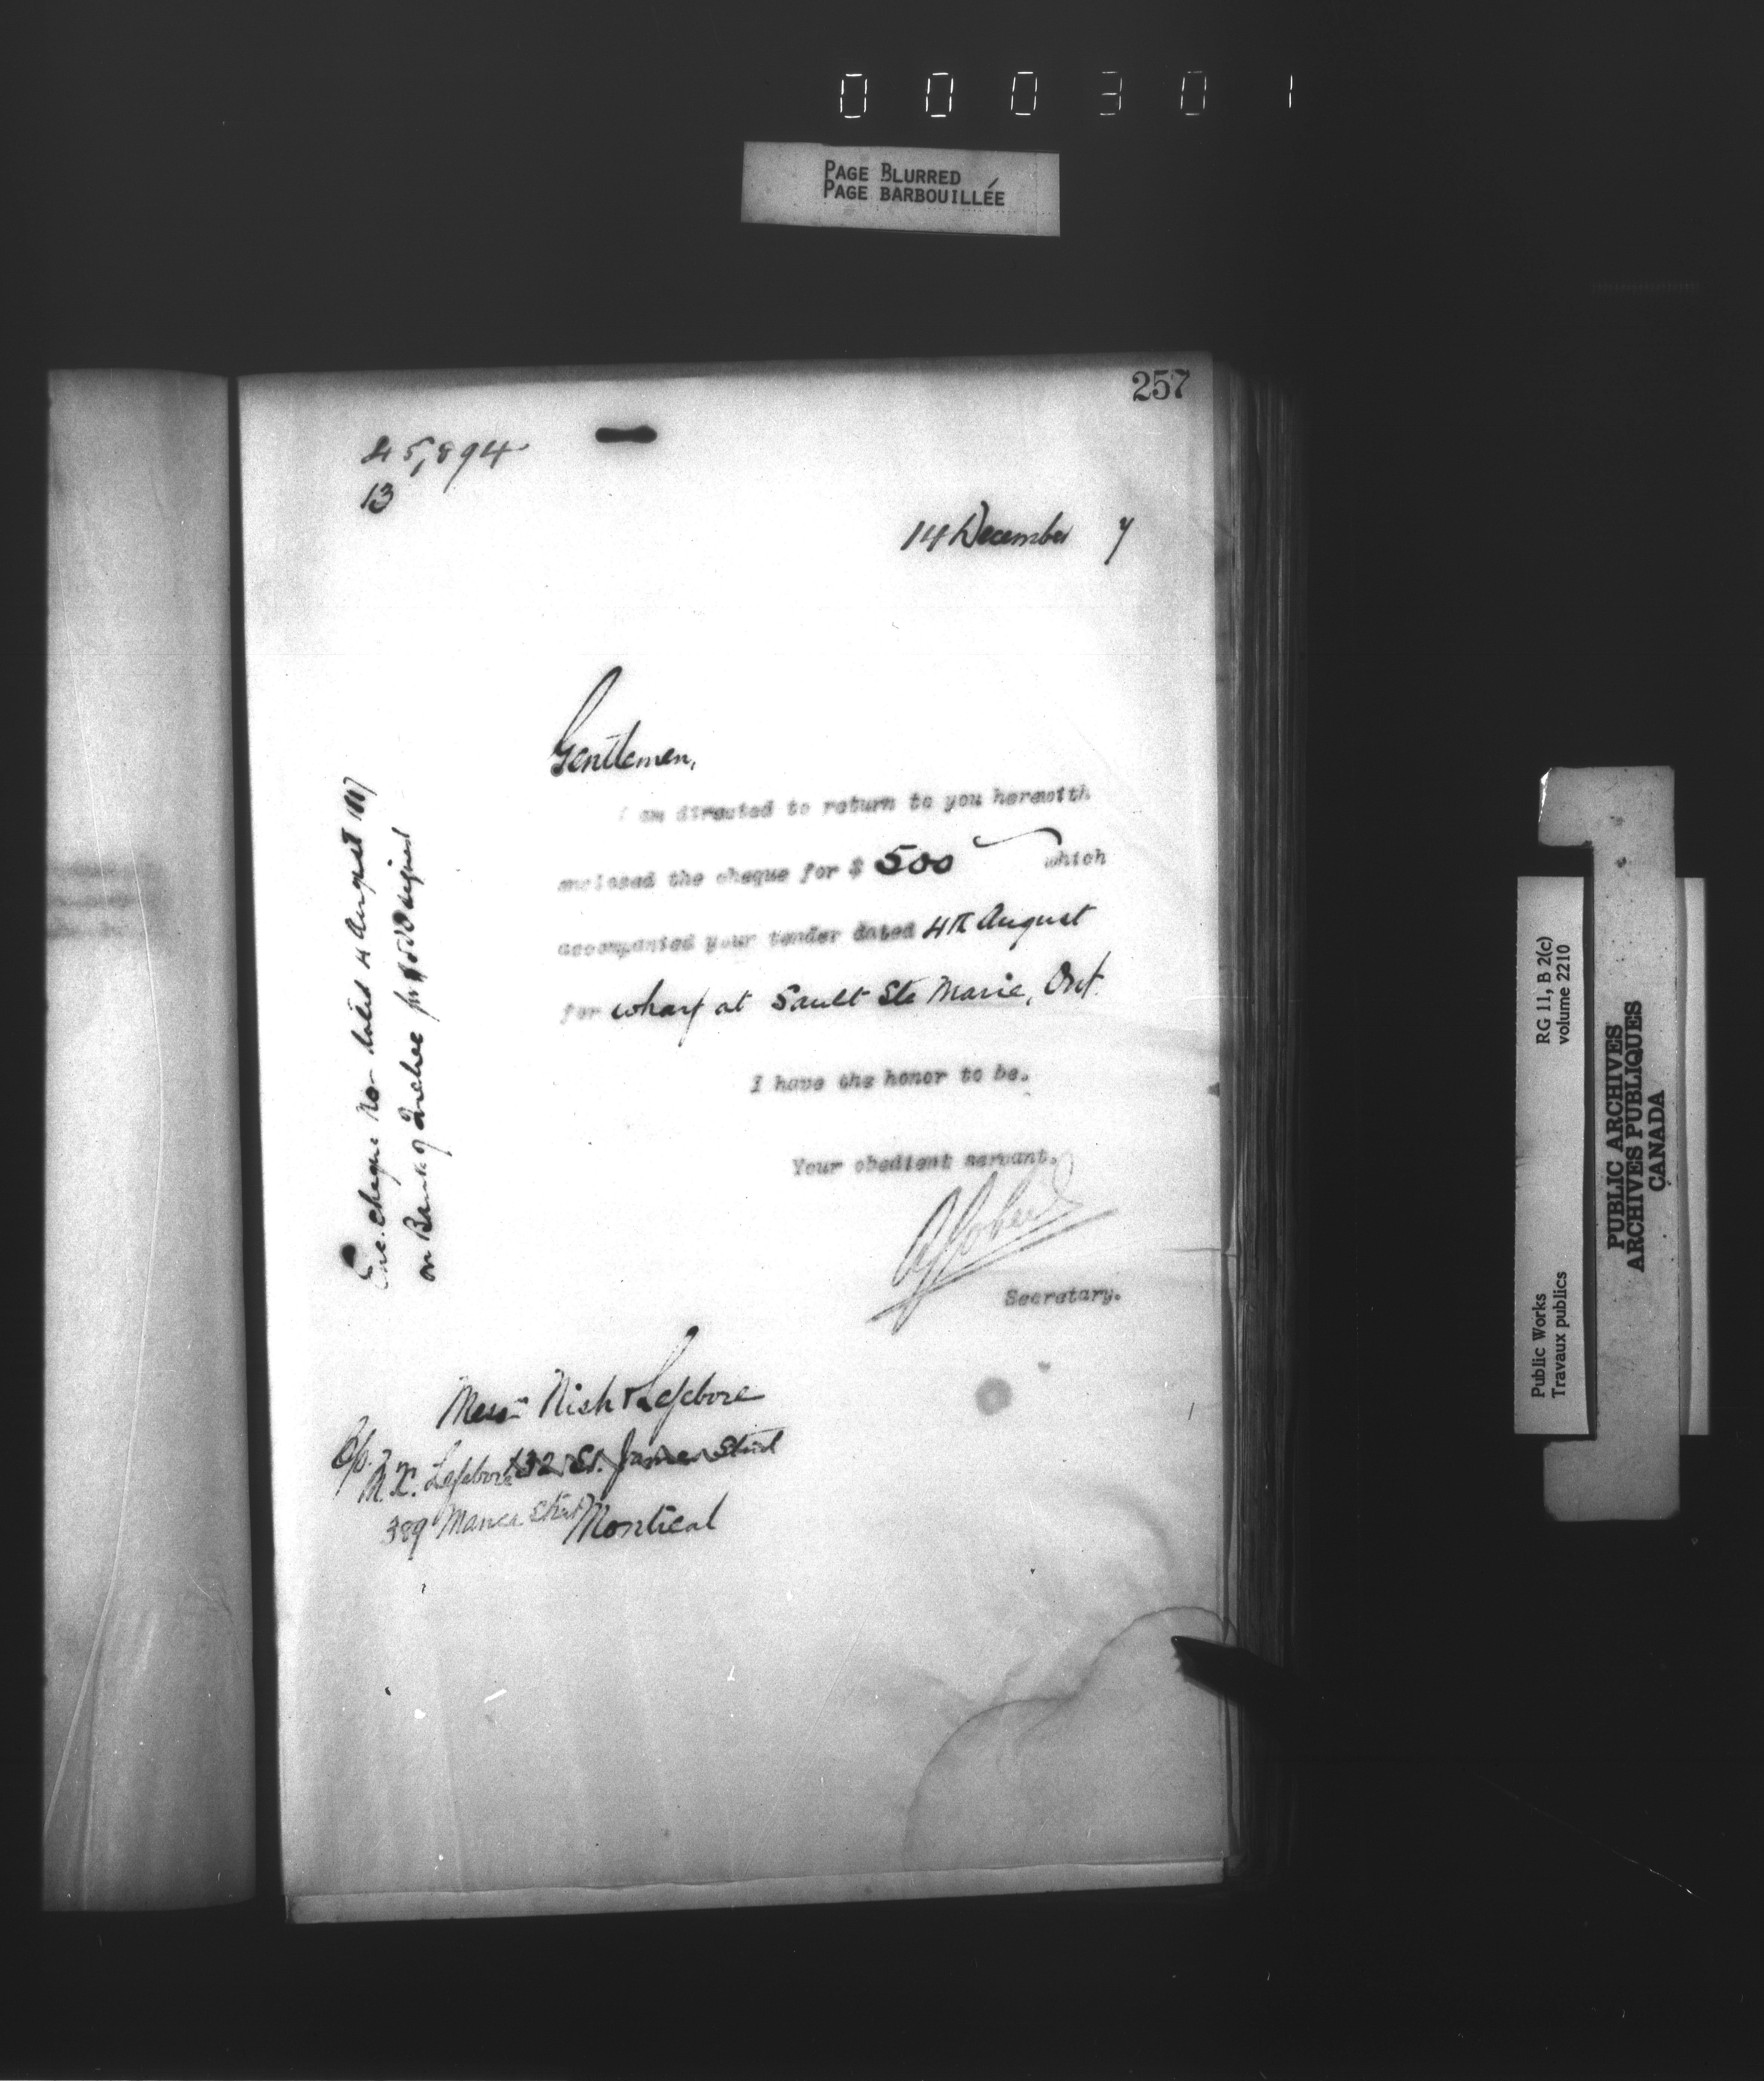 000301
PAGE BLURRED
PAGE BARBOUILLÉE
257
45,894
13
14 December 7
Gentlemen,
I am directed to return to you herewith
enclosed the cheque for $ 500 which
accompanied your tender dated 4th August
for wharf at Sault Ste Marie, Ont.
I have the honor to be.
Your obedient servant.
Secretary.
Enc. cheque No - dated 4 August 1887
on Bank of Quebec for $500 signed
Messrs Nish & Lefebvre
132 St. James Street
C/o. Lefebvre
389 Street Montreal
Public Works
Travaux publics
RG 11, B 2(c)
volume 2210
PUBLIC ARCHIVES
ARCHIVES PUBLIQUES
CANADA